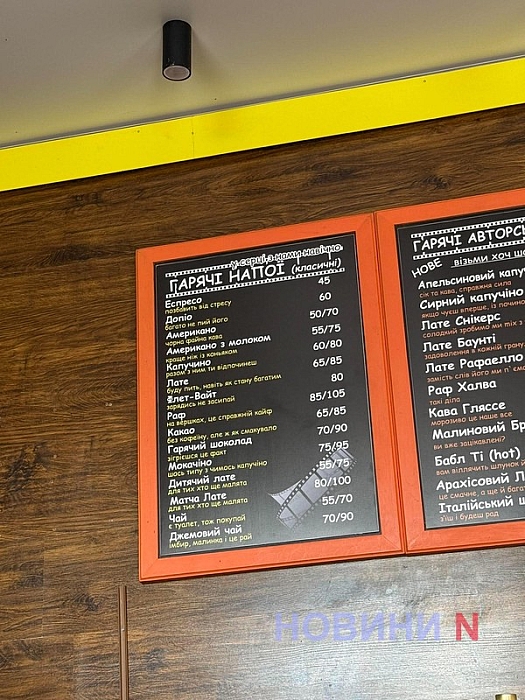 У серці з нами навічно
ГАРЯЧІ НАПОЇ (класичні)
Еспресо 45
позбавить від стресу
Допіо 60
багато не пий його
Американо 50/70
чорна файна кава
Американо з молоком 55/75
краще ніж із коньяком
Капучино 60/80
разом з ним ти відпочинеш
Лате 65/85
буду пить, навіть як стану багатим
Флет-Вайт 80
зарядись не засипай
Раф 85/105
на вершках, це справжній кайф
Какао 65/85
без кофеїну, але ж як смакувало
Гарячий шоколад 70/90
зігрієшся це факт
Мокачіно 75/95
щось типу з чимось капучіно
Дитячий лате 55/75
для тих хто ще малята
Матча Лате 80/100
для тих хто ще малята
Чай 55/70
є туалет, тож покупай
Джемовий чай 70/90
імбир, малинка і це рай
ГАРЯЧІ АВТОРСЬ
НОВЕ візьми хоч
Апельсиновий капу
сік та кава, справжня сила
Сирний капучіно
якщо чуєш вперше, із почина
Лате Снікерс
солодкий зробимо ми mix з
Лате Баунті
задоволення в кожній грану
Лате Рафаелло
замість слів його ми п'ємо
Раф Халва
такі діла
Кава Гляссе
морозиво це наше все
Малиновий Бр
ви вже зацікавлені?
Бабл Ті (hot)
вам виплячить шлунок и
Арахісовий Л
це смачне, а ще й бага
Італійський Ш
з'їш і будеш рад
НОВИНИ N